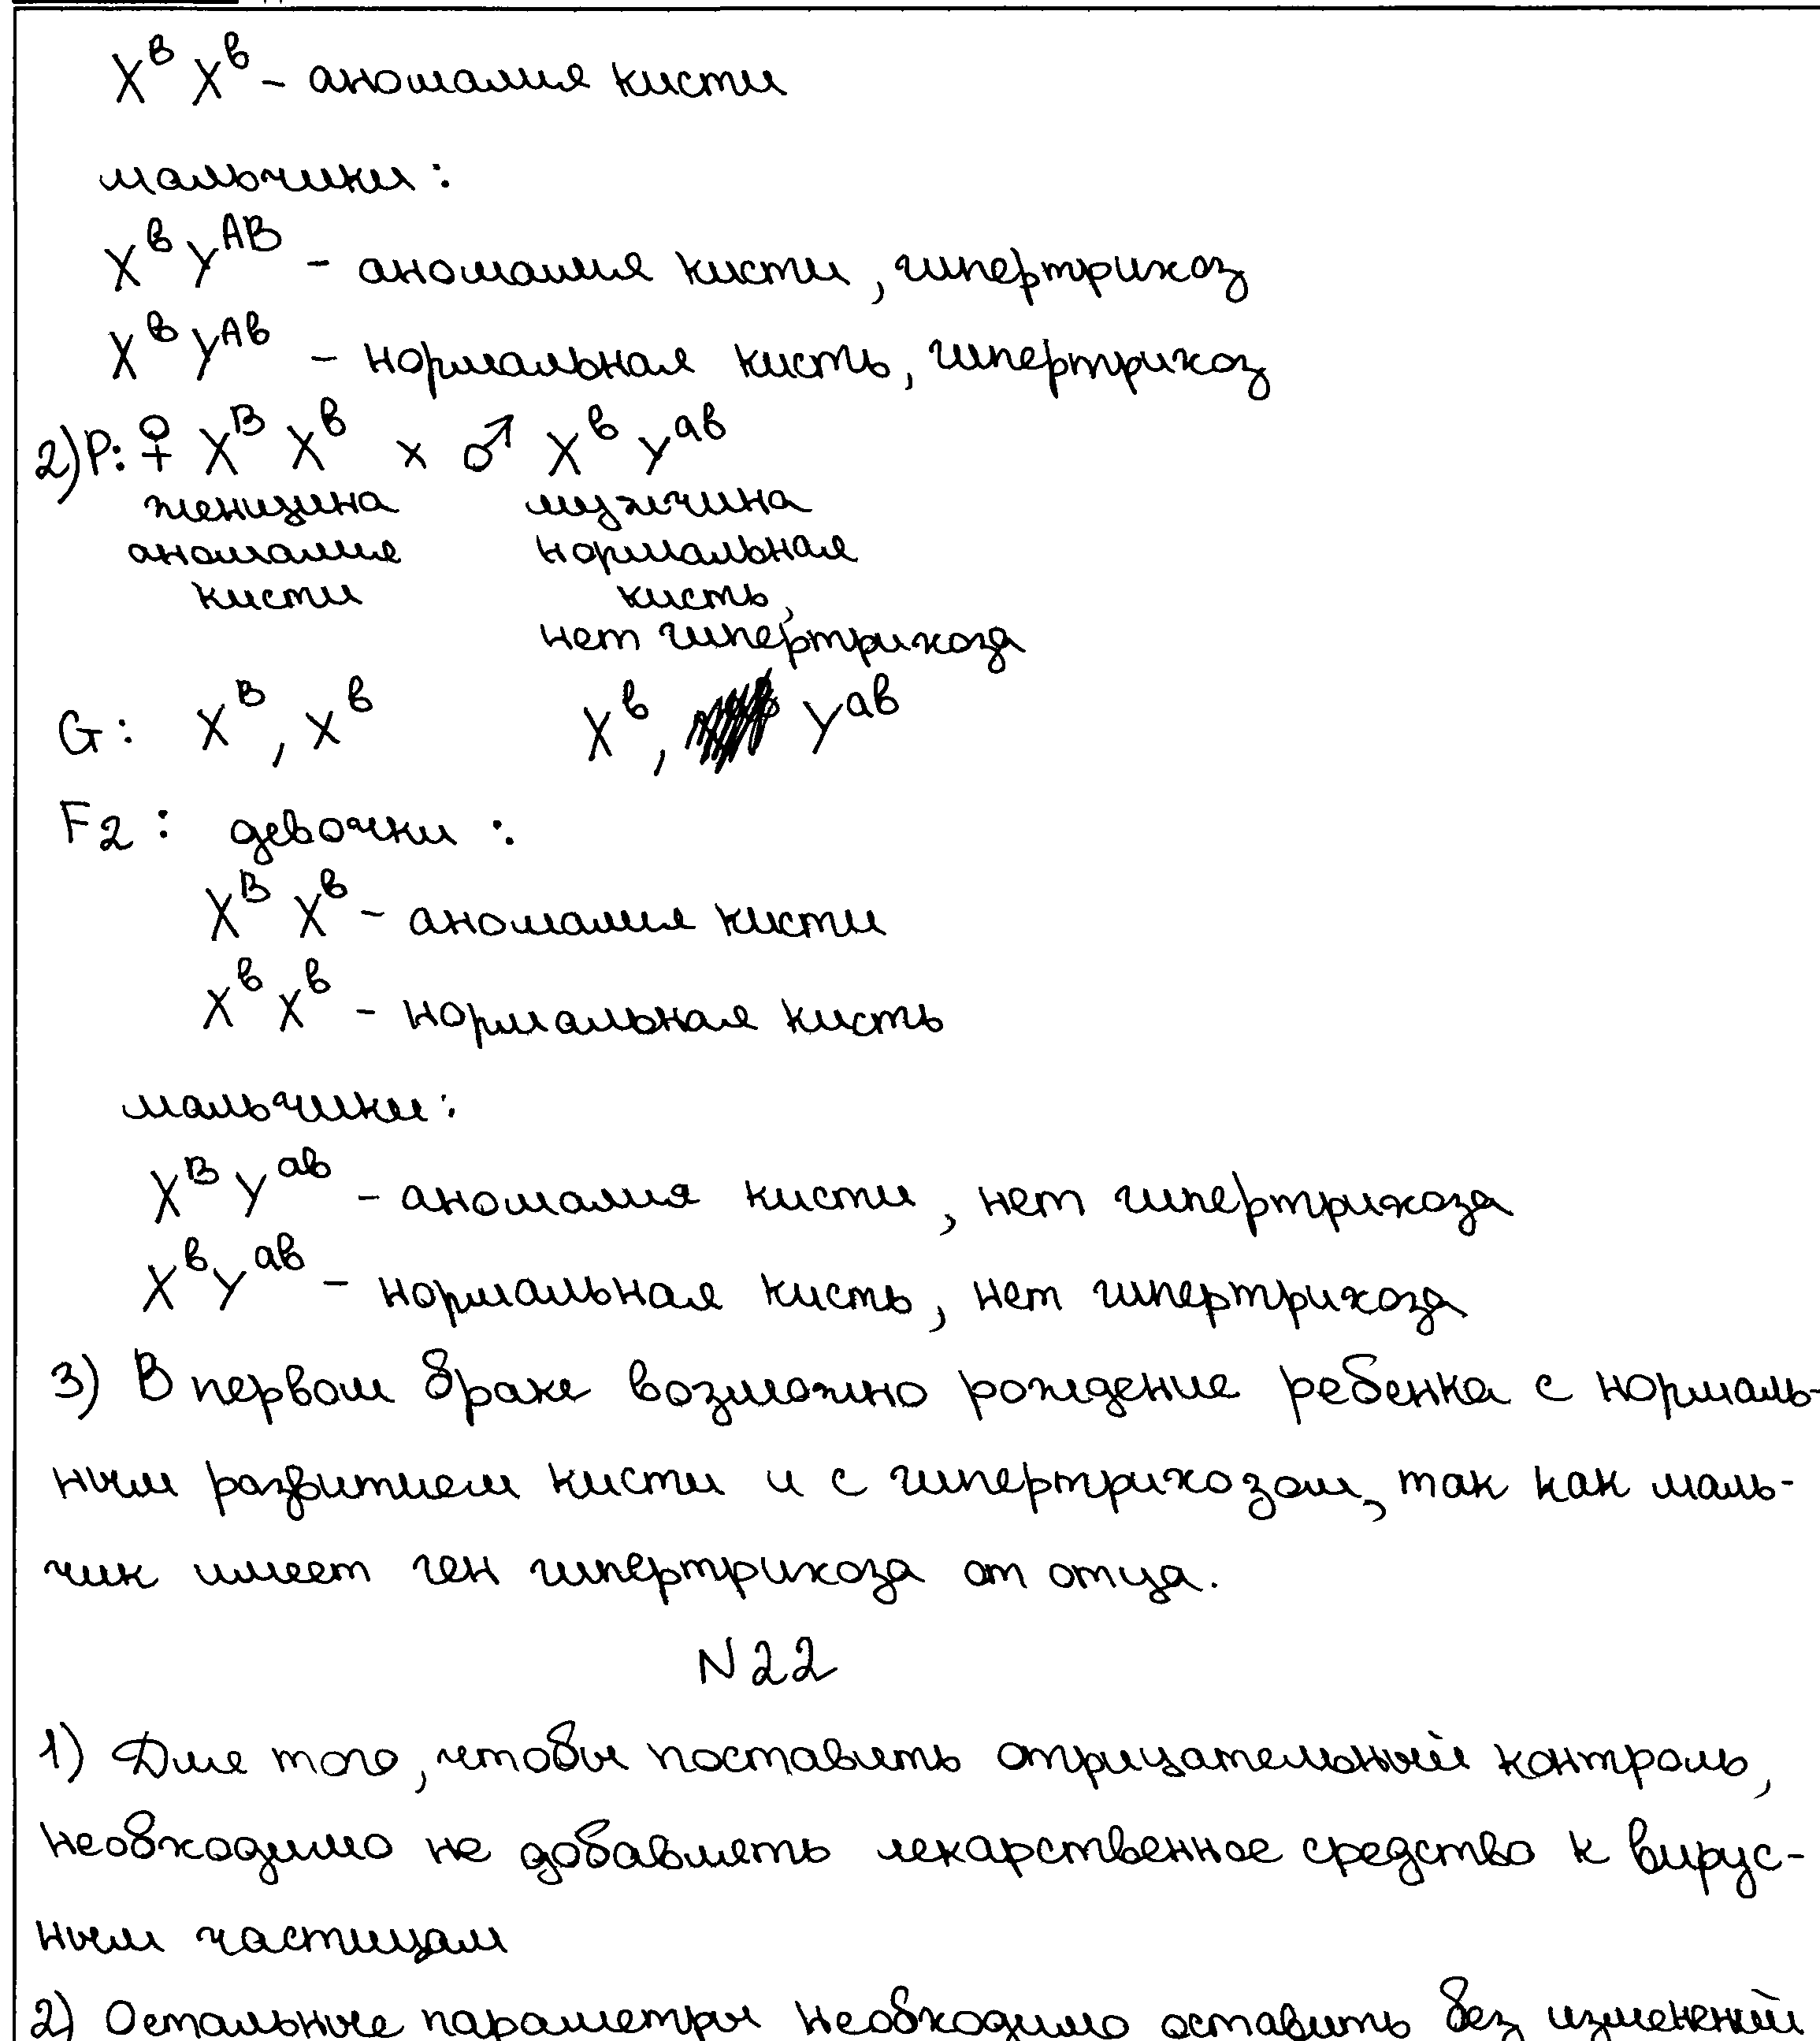 X^B X^b - аномалия кисти
мальчики:
X^b Y^AB - аномалия кисти, гипертрихоз
X^b Y^Ab - нормальная кисть, гипертрихоз
2) P: ♀ X^B X^b x ♂ X^b Y^ab
женщина мужчина
аномалия нормальная
кисти кисть,
нет гипертрихоза
G: X^B, X^b X^b, Y^ab
F2: девочки:
X^B X^b - аномалия кисти
X^b X^b - нормальная кисть
мальчики:
X^B Y^ab - аномалия кисти, нет гипертрихоза
X^b Y^ab - нормальная кисть, нет гипертрихоза
3) В первом браке возможно рождение ребенка с нормаль-
ным развитием кисти и с гипертрихозом, так как маль-
чик имеет ген гипертрихоза от отца.
N22
1) Для того, чтобы поставить отрицательный контроль,
необходимо не добавлять лекарственное средство к вирус-
ным частицам
2) Остальные параметры необходимо оставить без изменений